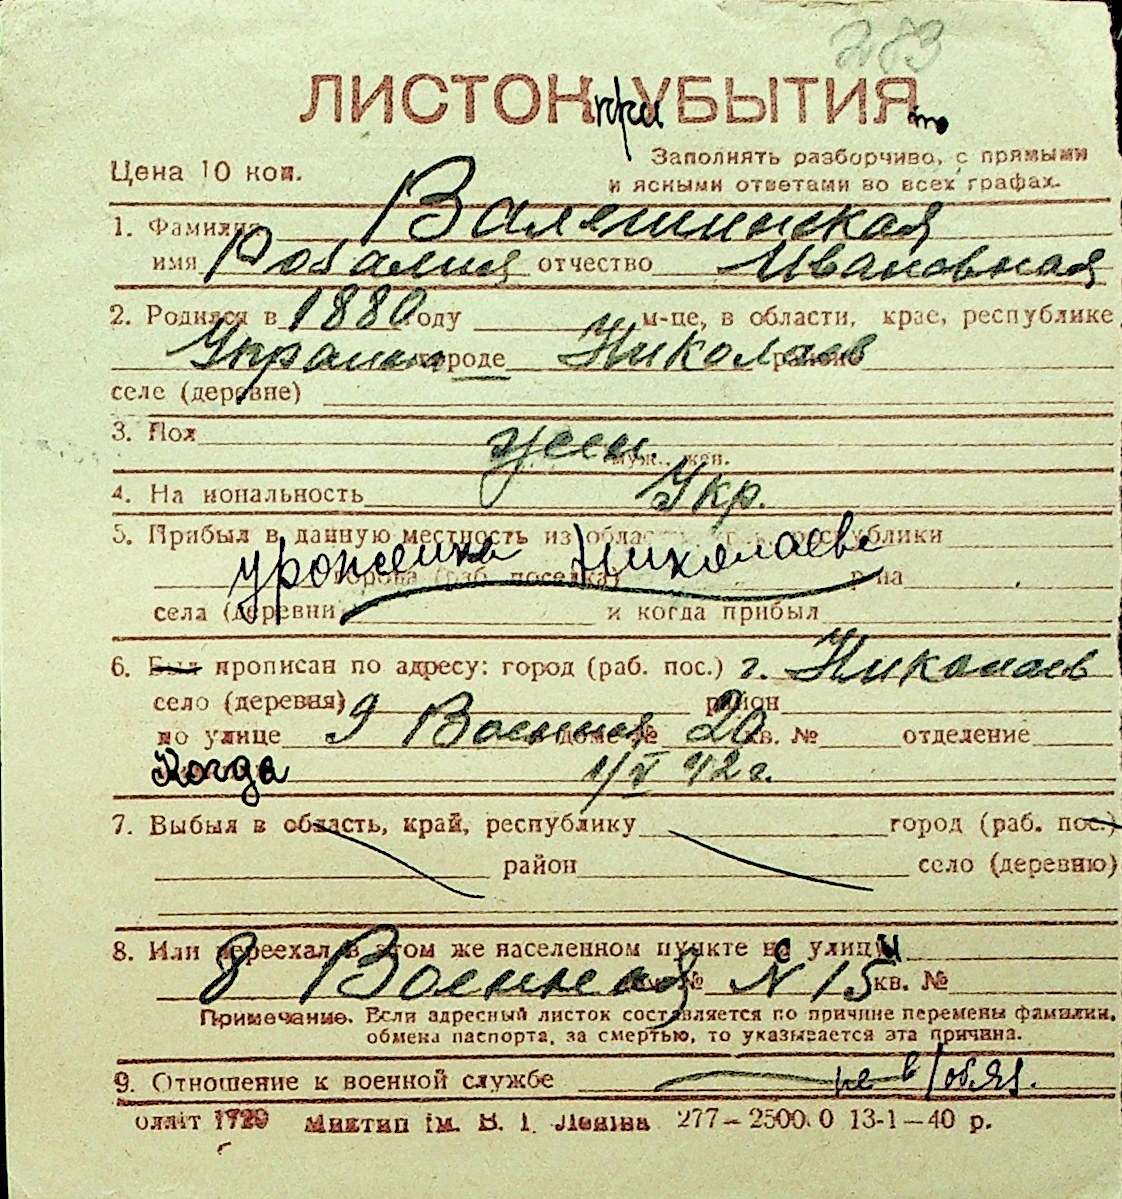 283
ЛИСТОК при УБЫТИЯ
Цена 10 коп.
Заполнять разборчиво, с прямыми
и ясными ответами во всех графах.
1. Фамилия Валегинская
имя Розалия отчество Ивановная
2. Родился в 1880 году м-це, в области, крае, республике
Украина городе Николаев районе
селе (деревне)
3. Пол жен. муж., жен.
4. На иональность Укр.
5. Прибыл в данную местность из области, края, республики
уроженка Николаева
города (раб. поселка) р-на
села (деревни и когда прибыл
6. Был прописан по адресу: город (раб. пос.) г. Николаев
село (деревня) район
по улице 9 Военная дом № 20 кв. № отделение
Когда 1/V 42 г.
7. Выбыл в область, край, республику город (раб. пос.)
район село (деревню)
8. Или переехал в этом же населенном пункте на улицу
8 Военная № 15 кв. №
Примечание. Если адресный листок составляется по причине перемены фамилии,
обмена паспорта, за смертью, то указывается эта причина.
9. Отношение к военной службе не в/обяз.
1729 ім. В. І. Леніна 277–2500.0 13-1–40 р.